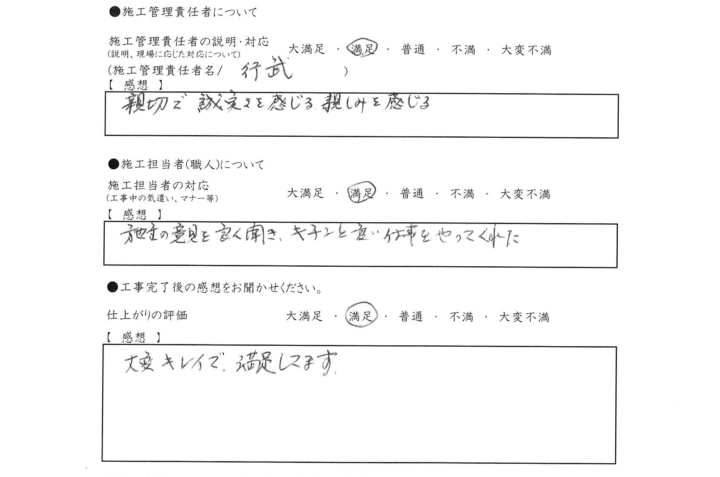 ●施工管理責任者について
施工管理責任者の説明・対応
(説明、現場に応じた対応について)
大満足 ・ 満足 ・ 普通 ・ 不満 ・ 大変不満
(施工管理責任者名/ 行武 )
【 感想 】
親切で 誠実さを感じる 親しみを感じる
●施工担当者(職人)について
施工担当者の対応
(工事中の気遣い、マナー等)
大満足 ・ 満足 ・ 普通 ・ 不満 ・ 大変不満
【 感想 】
施主の意見を良く聞き、キチンと良い仕事をやってくれた
●工事完了後の感想をお聞かせください。
仕上がりの評価 大満足 ・ 満足 ・ 普通 ・ 不満 ・ 大変不満
【 感想 】
大変キレイで、満足してます。